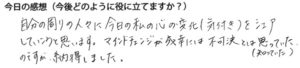 今日の感想（今後どのように役に立てますか？）
自分の周りの人々に今日の私の心の変化（気付き）をシェア
していこうと思います。マインドチェンジが効率には不可決とは思っていた
のですが、納得しました。（知っていた）